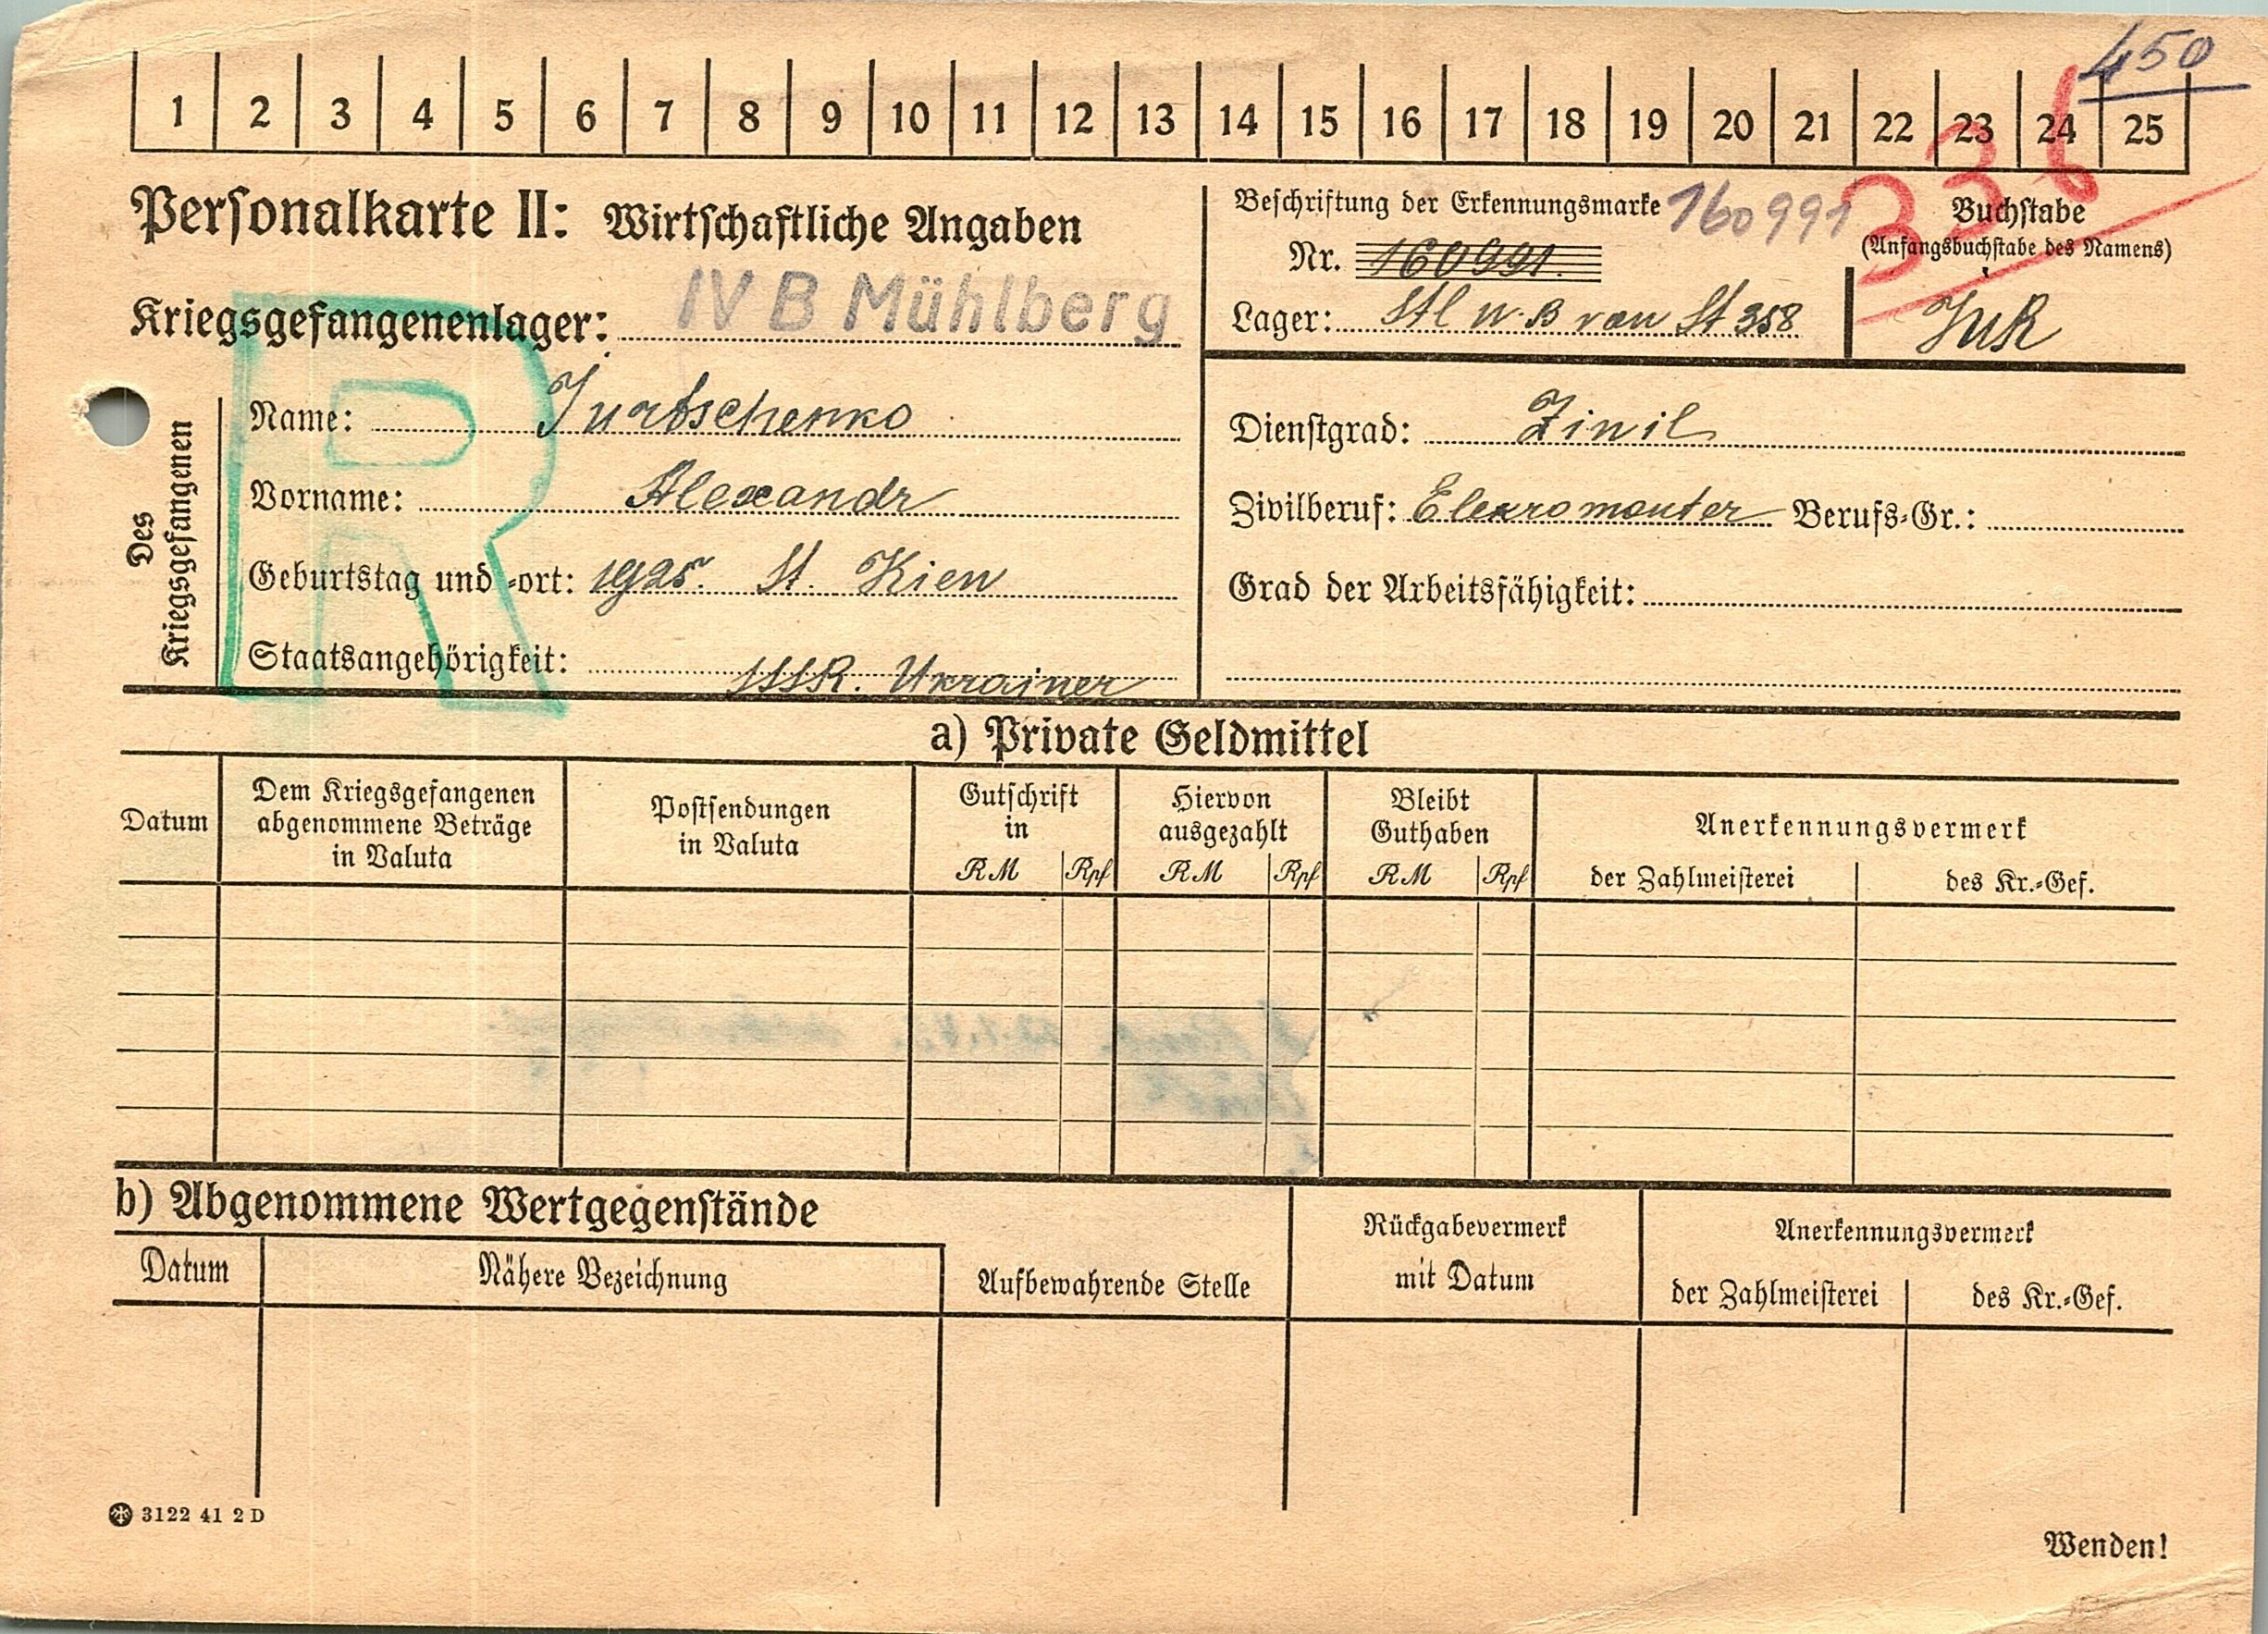 450
1 2 3 4 5 6 7 8 9 10 11 12 13 14 15 16 17 18 19 20 21 22 23 24 25
336
Personalkarte II: Wirtschaftliche Angaben
Kriegsgefangenenlager: IV B Mühlberg
Beschriftung der Erkennungsmarke 160991
Nr. 160991.
Lager: Stl IV. B von St 358
Buchstabe
(Anfangsbuchstabe des Namens)
JuR
R
Des Kriegsgefangenen
Name: Jurtschenko
Vorname: Alexandr
Geburtstag und -ort: 1925. St. Kiew
Staatsangehörigkeit: SSSR. Ukrainer
Dienstgrad: Ziwil
Zivilberuf: Elekromonter Berufs-Gr.:
Grad der Arbeitsfähigkeit:
a) Private Geldmittel
Datum
Dem Kriegsgefangenen
abgenommene Beträge
in Valuta
Postsendungen
in Valuta
Gutschrift
in
RM Rpf
Hiervon
ausgezahlt
RM Rpf
Bleibt
Guthaben
RM Rpf
Anerkennungsvermerk
der Zahlmeisterei des Kr.-Gef.
b) Abgenommene Wertgegenstände
Datum
Nähere Bezeichnung
Aufbewahrende Stelle
Rückgabevermerk
mit Datum
Anerkennungsvermerk
der Zahlmeisterei des Kr.-Gef.
3122 41 2 D
Wenden!